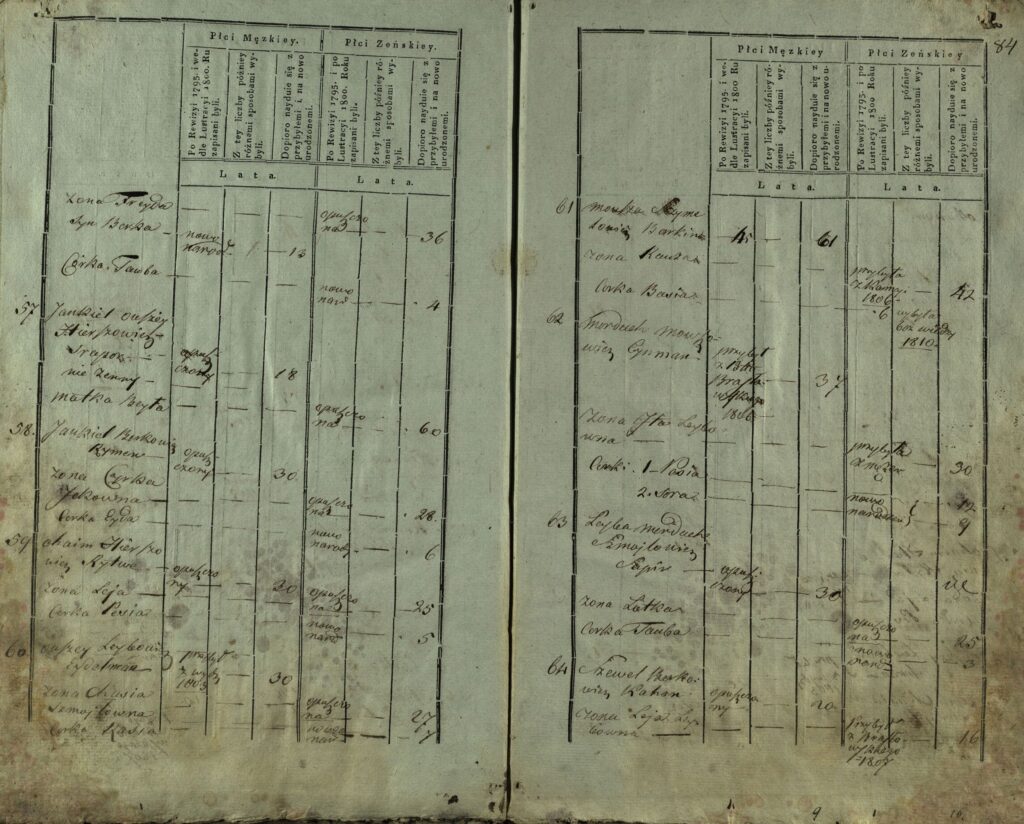 Płci Męzkiey.
Płci Zeńskiey.
Po Rewizyi 1795. i we-
dle Lustracyi 1800. Ru
zapisani byli.
Z tey liczby poźniey
róznemi sposobami wy-
byli.
Dopioro nayduie się z
przybyłemi i na nowo
urodzonemi.
Po Rewizyi 1795. i po
Lustracyi 1800. Roku
zapisani byli.
Z tey liczby poźniey ró-
znemi sposobami wy-
byli.
Dopioro nayduie się z
przybyłemi i na nowo
urodzonemi.
Lata.
Lata.
Zona Freyda
opuszczo
na 36
Syn Berka
nowo
narod. 13
Corka Tauba
nowo
nard 4
57 Jankiel Owszey
Hierszowicz
nie żenny
opusz
czony 18
matka Beyła
opuszczo
na 60
58. Jankiel Berkowicz
Rymer
opusz
czony 30
Zona Cyrka
Jckowna
opuszczo
na 28
Corka Eyda
nowo
narodz 6
59 Chaim Hierszo
wicz Rytwo
opuszczo
ny 30
Zona Leja
opuszczo
na 25
Corka Pesia
nowo
nard 5
60 Owszey Leybowicz
przybył
1803 30
Zona Chasia
Szmojłowna
opuszczo
na 27
Corka Kasia
nowo
nar 7
84
Płci Męzkiey
Płci Zeńskiey.
Po Rewizyi 1795. i we-
dle Lustracyi 1800. Ru
zapisani byli.
Z tey liczby poźniey ró-
żnemi sposobami wy-
byli.
Dopioro nayduie się z
przybyłemi i na nowo u-
rodzonemi.
Po Rewizyi 1795. i po
Lustracyi 1800. Roku
zapisani byli.
Z tey liczby poźniey
różnemi sposobami wy-
byli.
Dopioro nayduie się z
przybyłemi i na nowo
urodzonemi.
Lata.
Lata.
61 Mowsza Szyme
lowicz Barkin
45 61
Zona
przybyła
1806 42
Corka Basia
6 wybyła
bez wiesci
1810
62 Morduch Mowszo
wicz Cynman
przybył
z
1806 37
Zona Jta Leybo
wna
przybyła
z mężem 30
Corki 1 Pesia
nowo
narodzon 12
2 Sora
9
63 Leyba Morduch
Szmojłowicz
Sapir
opusz
czony 30
Zona Łatka
opuszczo
na 25
Corka Tauba
nowo
3
64 Szewel Berko
wicz Kahan
opuszczo
ny 20
Zona Leja Ley
bowna
przybył
z
1807 16